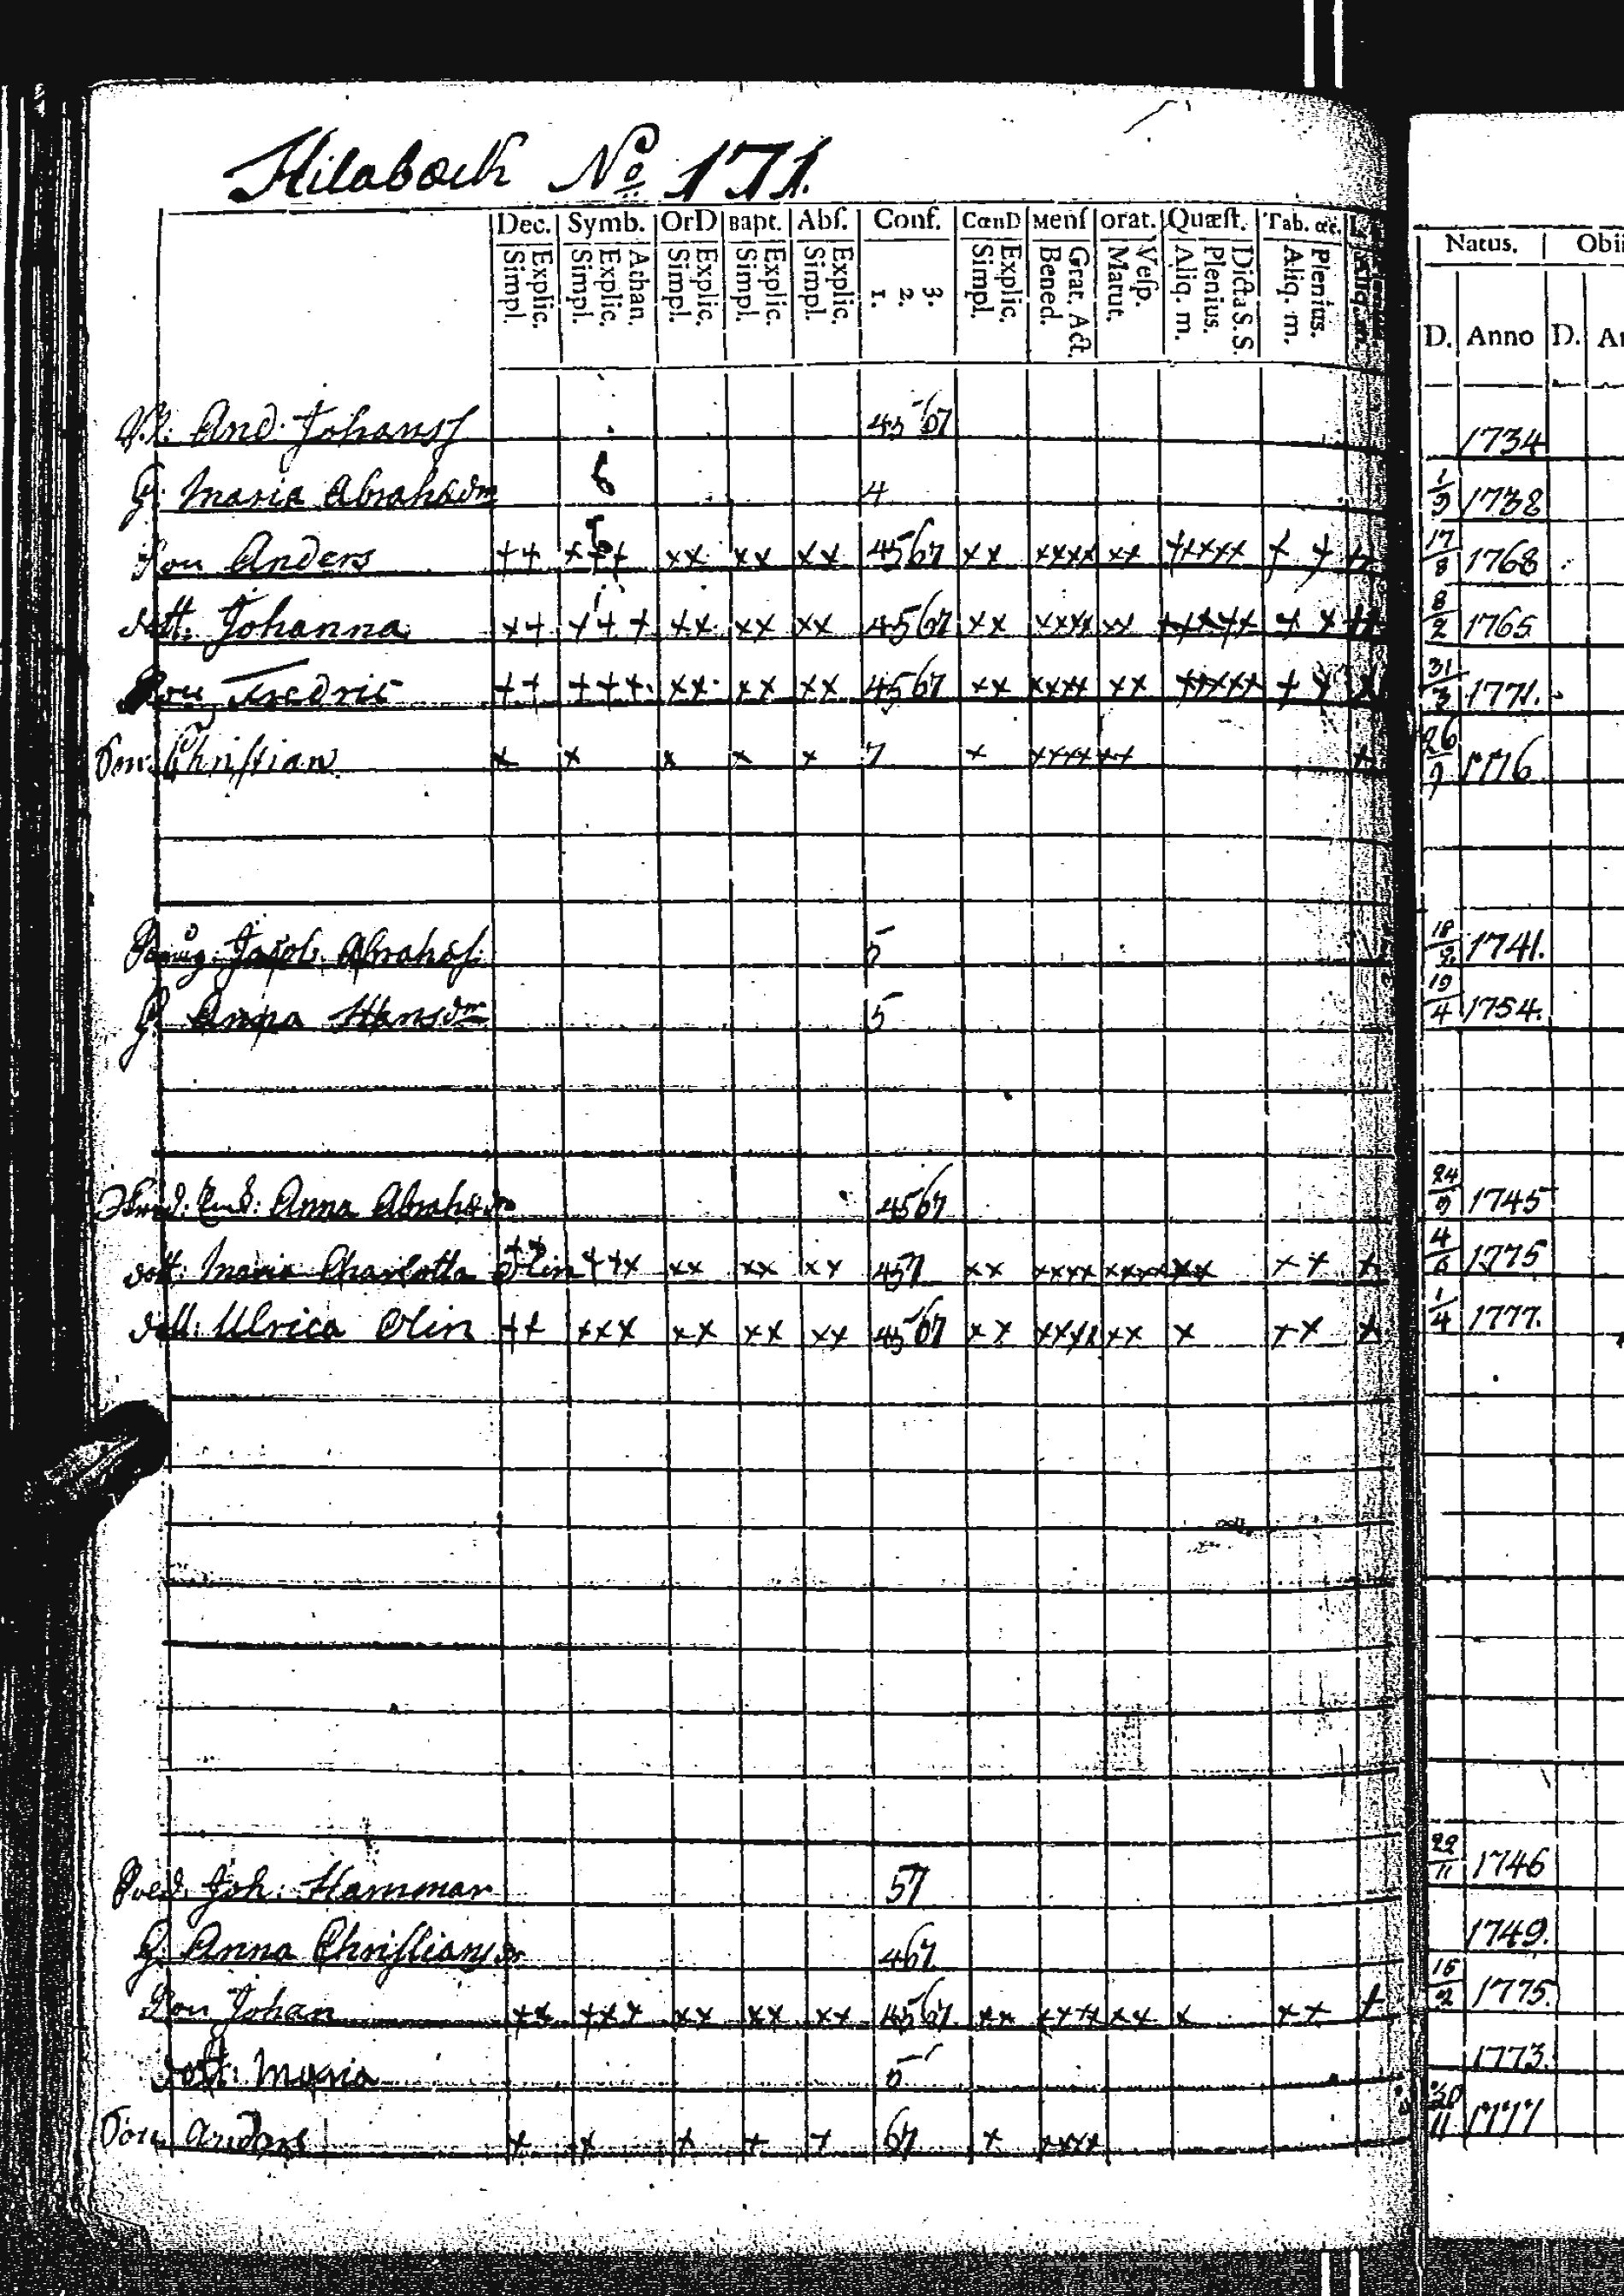 Hilaboch No 171.
Dec. Symb. OrD Bapt. Abſ. Conf. CœnD Menſ orat. Quæſt. Tab. œc. Natus. Obii
Explic. Simpl. Athan. Explic. Simpl. Explic. Simpl. Explic. Simpl. Explic. Simpl. 3. 2. 1. Explic. Simpl. Grat. Act. Bened. Veſp. Matut. Dicta S.S. Plenius. Aliq. m. Plenius. Aliq. m. D. Anno D.
And: Johansſ 4567 1734
G: Maria Abrahådr 4 1738
Son Anders ++ +++ xx xx xx 4567 xx xxxx xx +xxxx + + 17/8 1768
dott: Johanna x+ +++ xx xx xx 4567 xx xxxx xx +xxxx + x 8/2 1765
Son Fredric ++ +++ xx xx xx 4567 xx xxxx xx xxxxx + x x 31/3 1771.
Son Christian x x x x x 7 x xxxx xx x 26/9 1776
Jacob Abrahåſ: 5 18/9 1741.
G. Anna Hansdr 5 19/4 1754.
Enk: Anna Abrahådr 4567 24/9 1745
dott: Maria Charlotta Olin ++ ++x xx xx xx 457 xx xxxx xxxx xx ++ x 4/6 1775
dott: Ulrica Olin ++ xxx xx xx xx 4567 xx xxxx xx x xx x 1/4 1777.
Sold. Joh: Hammar 57 22/11 1746
G. Anna Christiansdr 467 1749.
Son Johan xx xxx xx xx xx 4567 xx xxxx xx x xx + 16/2 1775.
dott: Maria 5 1773.
Son Anders x x x + + 67 x xxxx 30/11 1777